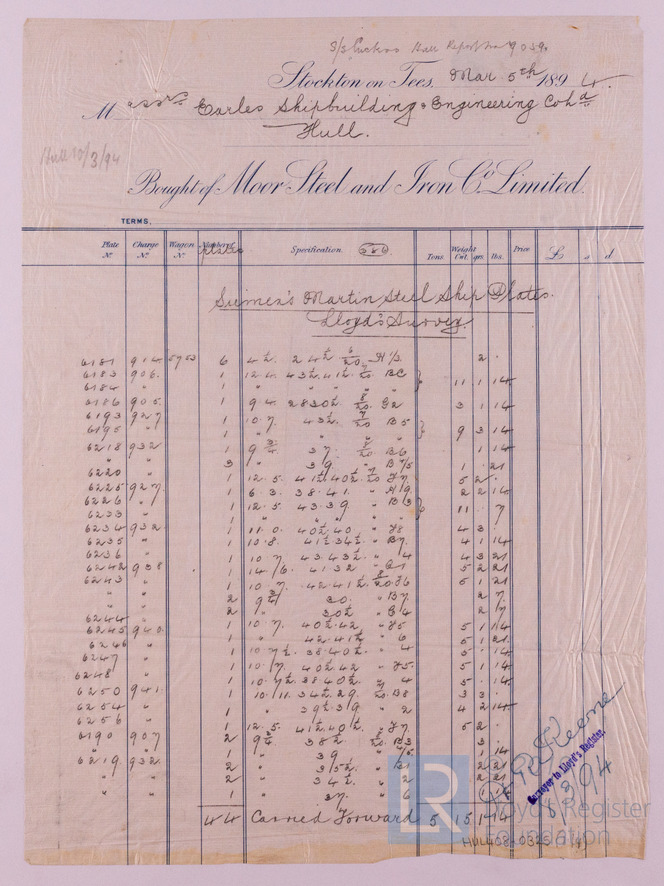 Report No 9059.
Stockton on Tees. Mar 5th 1894.
Messrs Earles Shipbuilding & Engineering Co Ld
Hull.
Hull 10/3/94
Bought of Moor Steel and Iron Co. Limited.
TERMS.
Plate No. Charge No. Wagon No. Number plates Specification. 386 Tons. Weight Cwt. qrs. lbs. Price £ s d
Siemen's Martin Steel Ship Plates.
Lloyd's Survey.
6181 914 5953 6 4½. 24½ 6/20 2
6183 906. 1 12.4. 43½.41½. 7/20 BC
6184 " 1 " " " " 11 1 14
6186 905. 1 9.4. 2830½ 8/20 G2 3 1 14
6193 927 1 10.7. 43½. 7/20 B5
6195 " 1 " " " 9 3 14
6218 932 1 9¾ 37. 8/20 B6 1 14
" " 3 " 39 " 1 21
6220 " 1 12.5. 41½ 40½ 5 2
6225 927 1 6.3. 38.41. " 2 2 14
6226 " 1 12.5. 43.39 " B3
6233 " 1 " " " 11 7
6234 932 1 11.0. 40½.40 " 4 3
6235 " 1 10.8. 41½ 34½ " B7. 4 1 14
6236 " 1 10.7 43.43½. " 4 4 3 21
6242 938 1 14/6. 41.32 " 5 2 21
6243 " 1 10.7. 42.41½ 8/20 5 1 21
" " 2 9¾ 30. " B7 2 7
" " 2 " 30½ " G4 2 7
6244 " 1 10.7. 40½.42 " 5 1 14
6245 940. 1 " 42.41½ " 6 5 1 21
6246 " 1 10.7½. 38.40½. " 4 5 14
6247 " 1 10.7. 40½.42 " 5 1 14
6248 " 1 10.7½.38.40½. 4 5 14
6250 941. 1 10.11.34½.29. B8 3 3
6254 " 1 " 39½.39 " 2 4 2 14
6256 " 1 12.5. 41½.40½. 5 2
6190 907 2 9¾ 38½ 8/20 B3 3
6219. 932. 1 " 39 " 1 14
" " 2 " 35½. " 2 21
" " 2 " 34½. " 2 2 21
" " 1 " 37. " 6 1
44 Carried Forward 5 15 1 14
Keene
Surveyor to Lloyd's Register.
8/3/94
LR
Lloyd's Register
Foundation
HUL408-0325